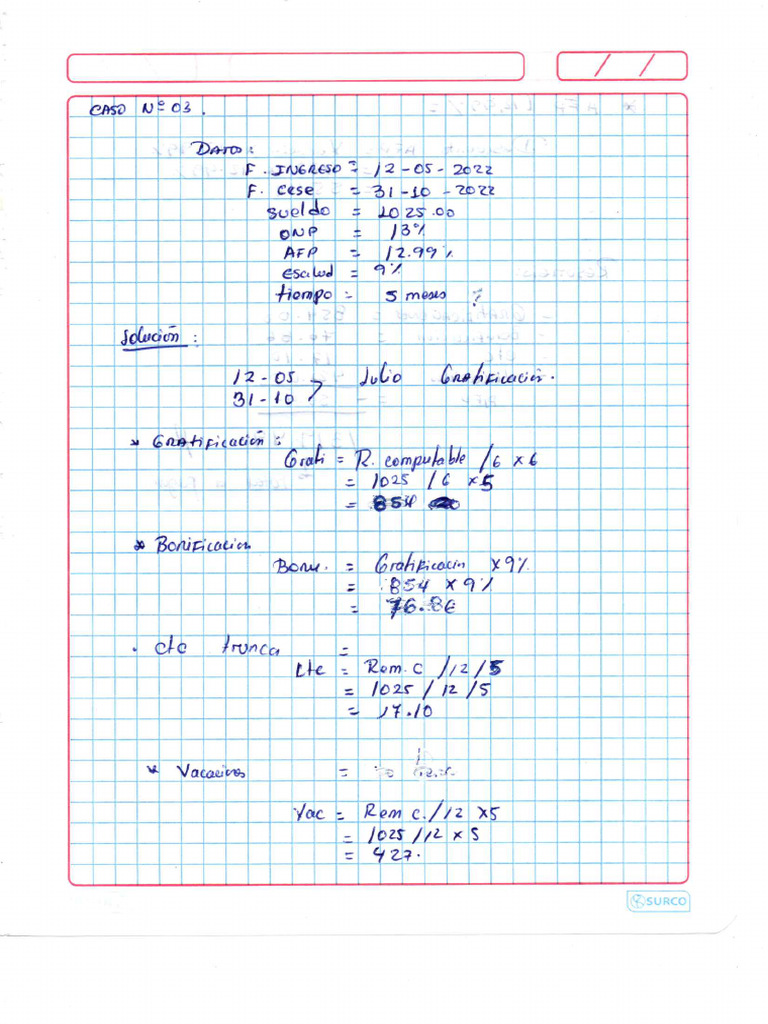 / /
CASO Nº 03.
DATOS:
F. INGRESO = 12-05-2022
F. Cese = 31-10-2022
Sueldo = 1025.00
ONP = 13%
AFP = 12.99%
Esalud = 9%
tiempo = 5 meses ?
Solución:
12-05
31-10 > Julio Gratificación.
* GRAtificación:
Grati = R. computable /6 x 6
= 1025 / 6 x 5
= 854
* Bonificacion
Bonu. = Gratificacin x 9%
= 854 x 9%
= 76.86
. Ctc trunca =
Ctc = Rem. C /12/5
= 1025 / 12 / 5
= 17.10
* Vacacions =
Vac = Rem c. / 12 x 5
= 1025 / 12 x 5
= 427.
SURCO